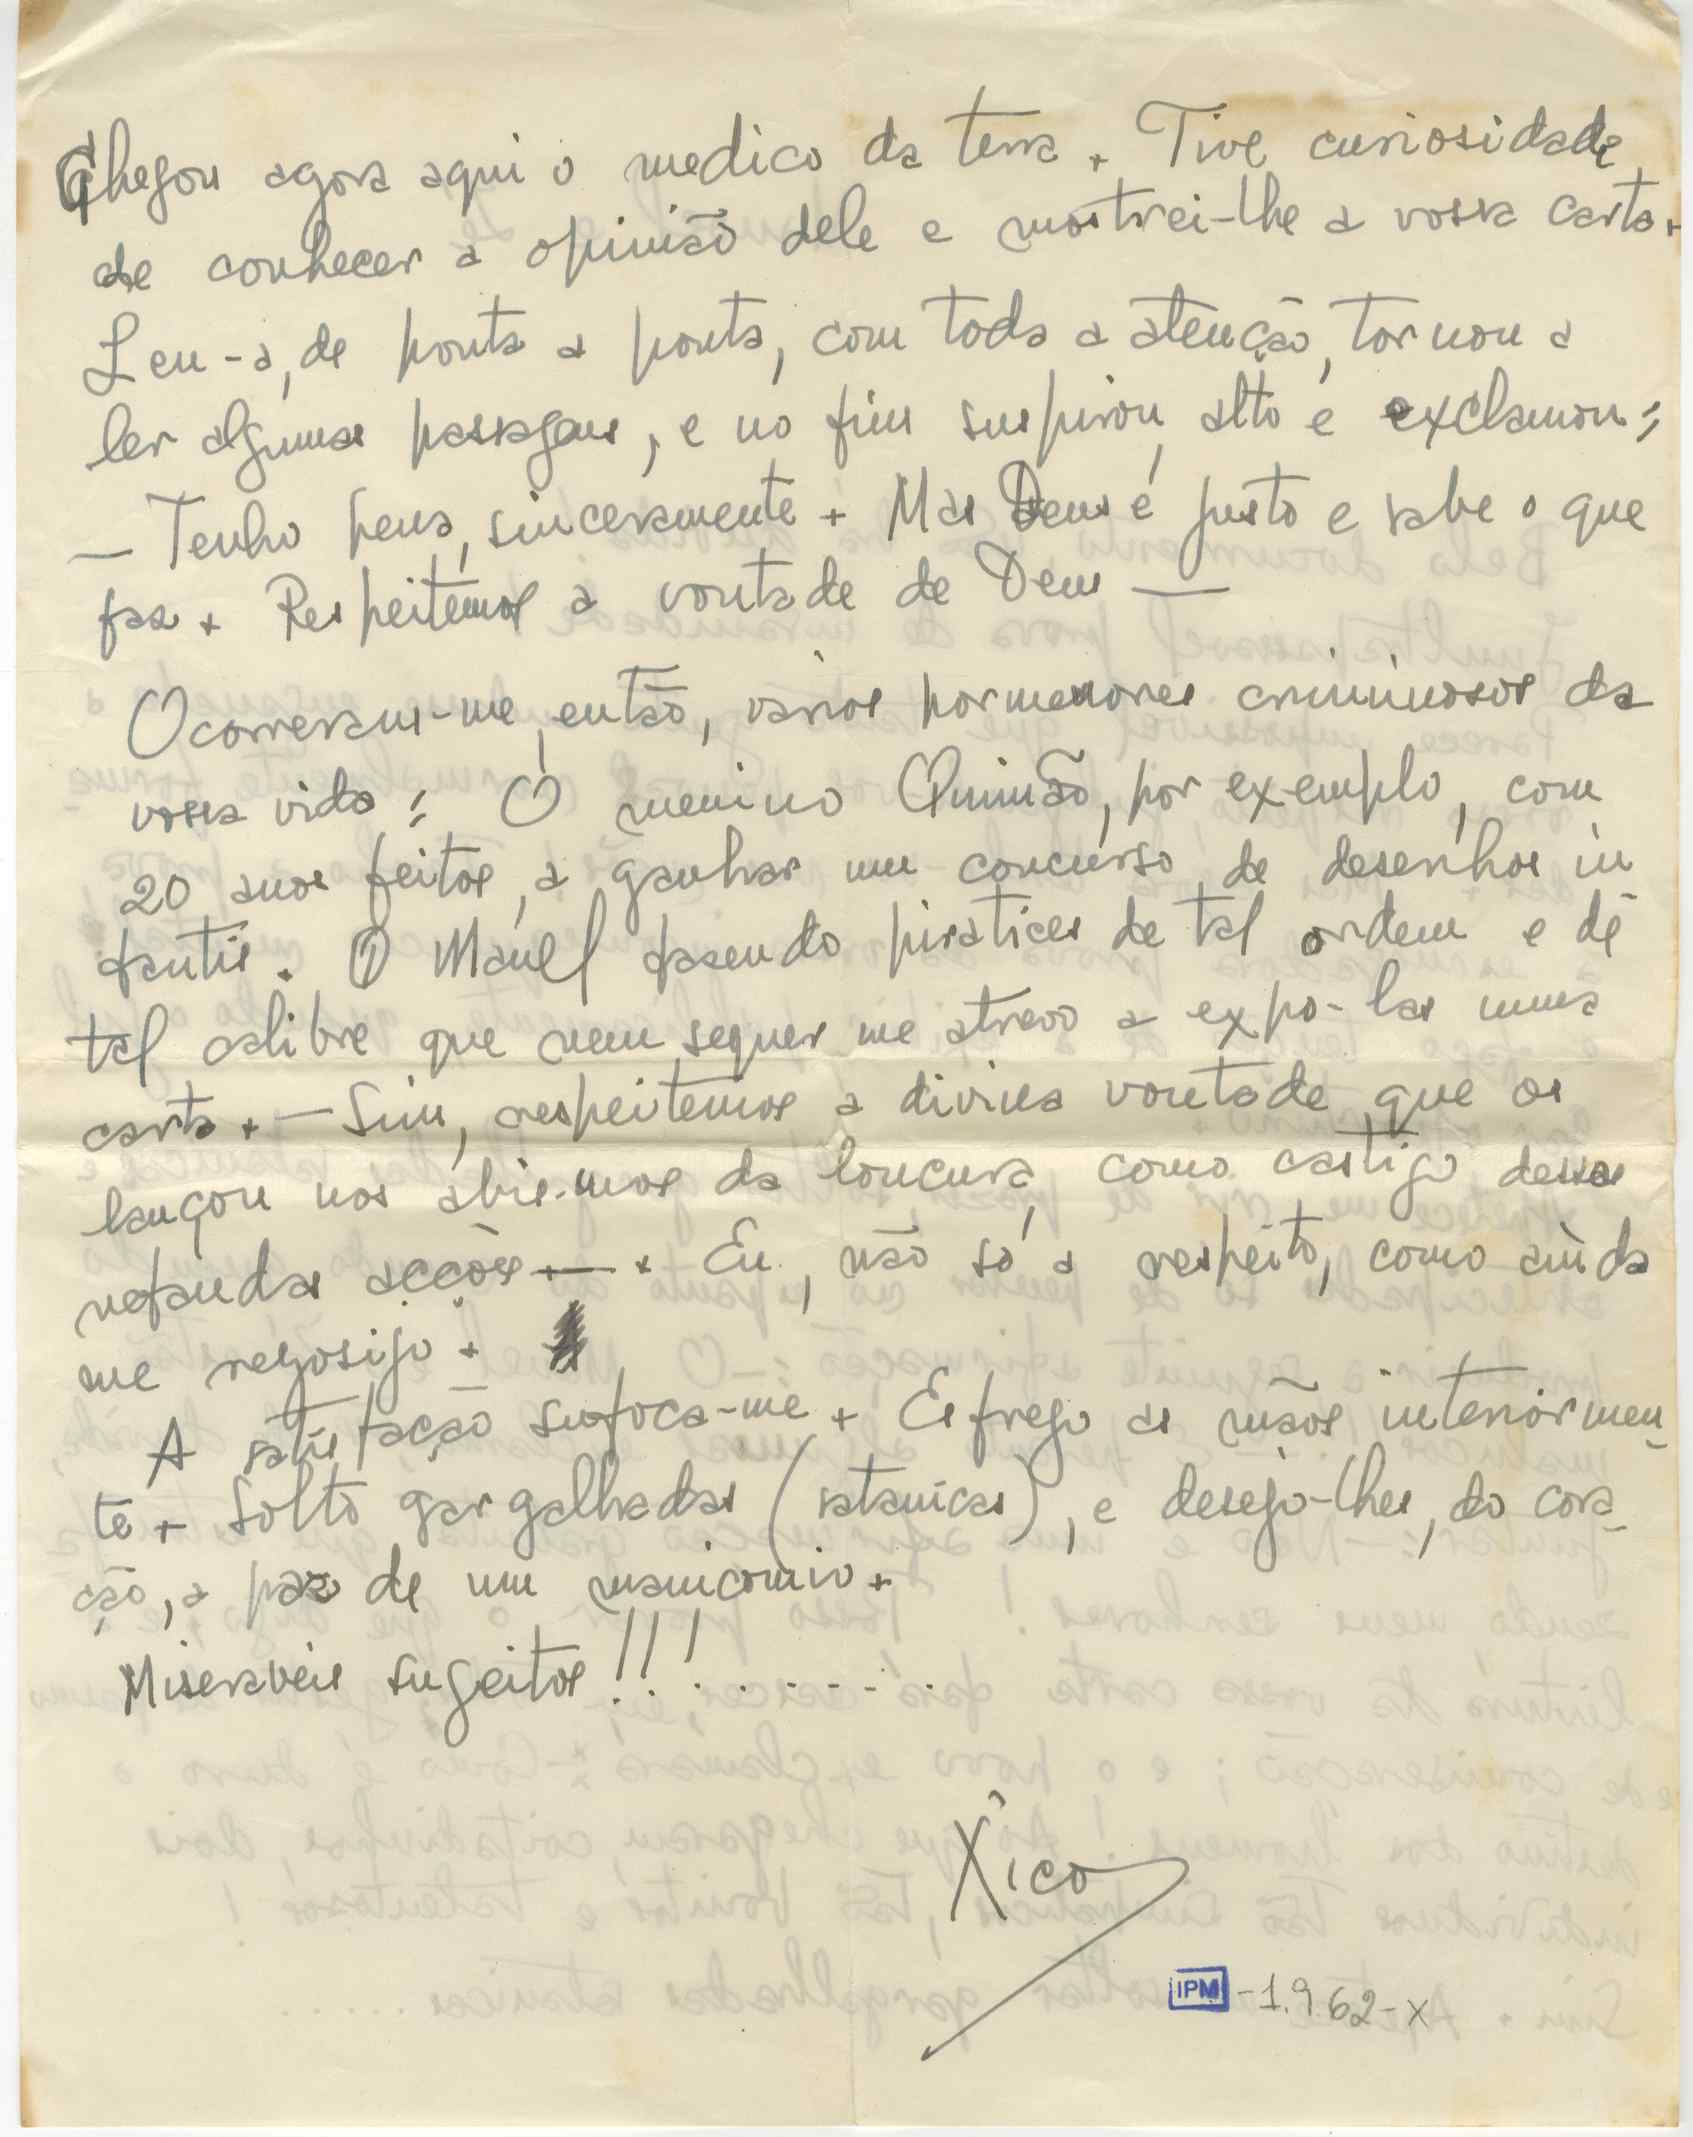 Chegou agora aqui o medico da terra. Tive curiosidade
de conhecer a opinião dele e mostrei-lhe a vossa carta.
Leu-a, de ponta a ponta, com toda a atenção, tornou a
ler algumas passagens, e no fim suspirou alto e exclamou:
— Tenho pena, sinceramente. Mas Deus é justo e sabe o que
faz. Respeitemos a vontade de Deus —
Ocorreram-me, então, varios pormenores criminosos da
vossa vida: O menino Quimão, por exemplo, com
20 anos feitos, a ganhar um concurso de desenhos in
fantis. O Manel fasendo piratices de tal ordem e de
tal calibre que nem sequer me atrevo a expo-las numa
carta. — Sim, respeitemos a divina vontade que os
lançou nos abis-mos da loucura, como castigo dessas
nefandas acções —. Eu, não só a respeito, como ainda
me regosijo.
A satisfação sufoca-me. Esfrego as mãos interiormen-
te. Solto gargalhadas (satanicas), e desejo-lhes, do cora-
ção, a paz de um manicomio.
Miseraveis sugeitos!!! . . . . . . .
Xico
IPM -1.9.62-X